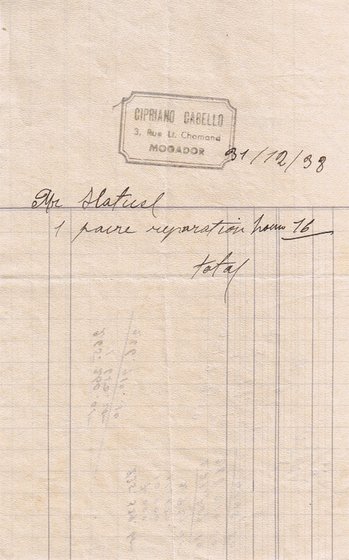 CIPRIANO CABELLO
3, Rue Lt. Chamand
MOGADOR
31/12/38
Mr
1 paire reparation pour 16
total